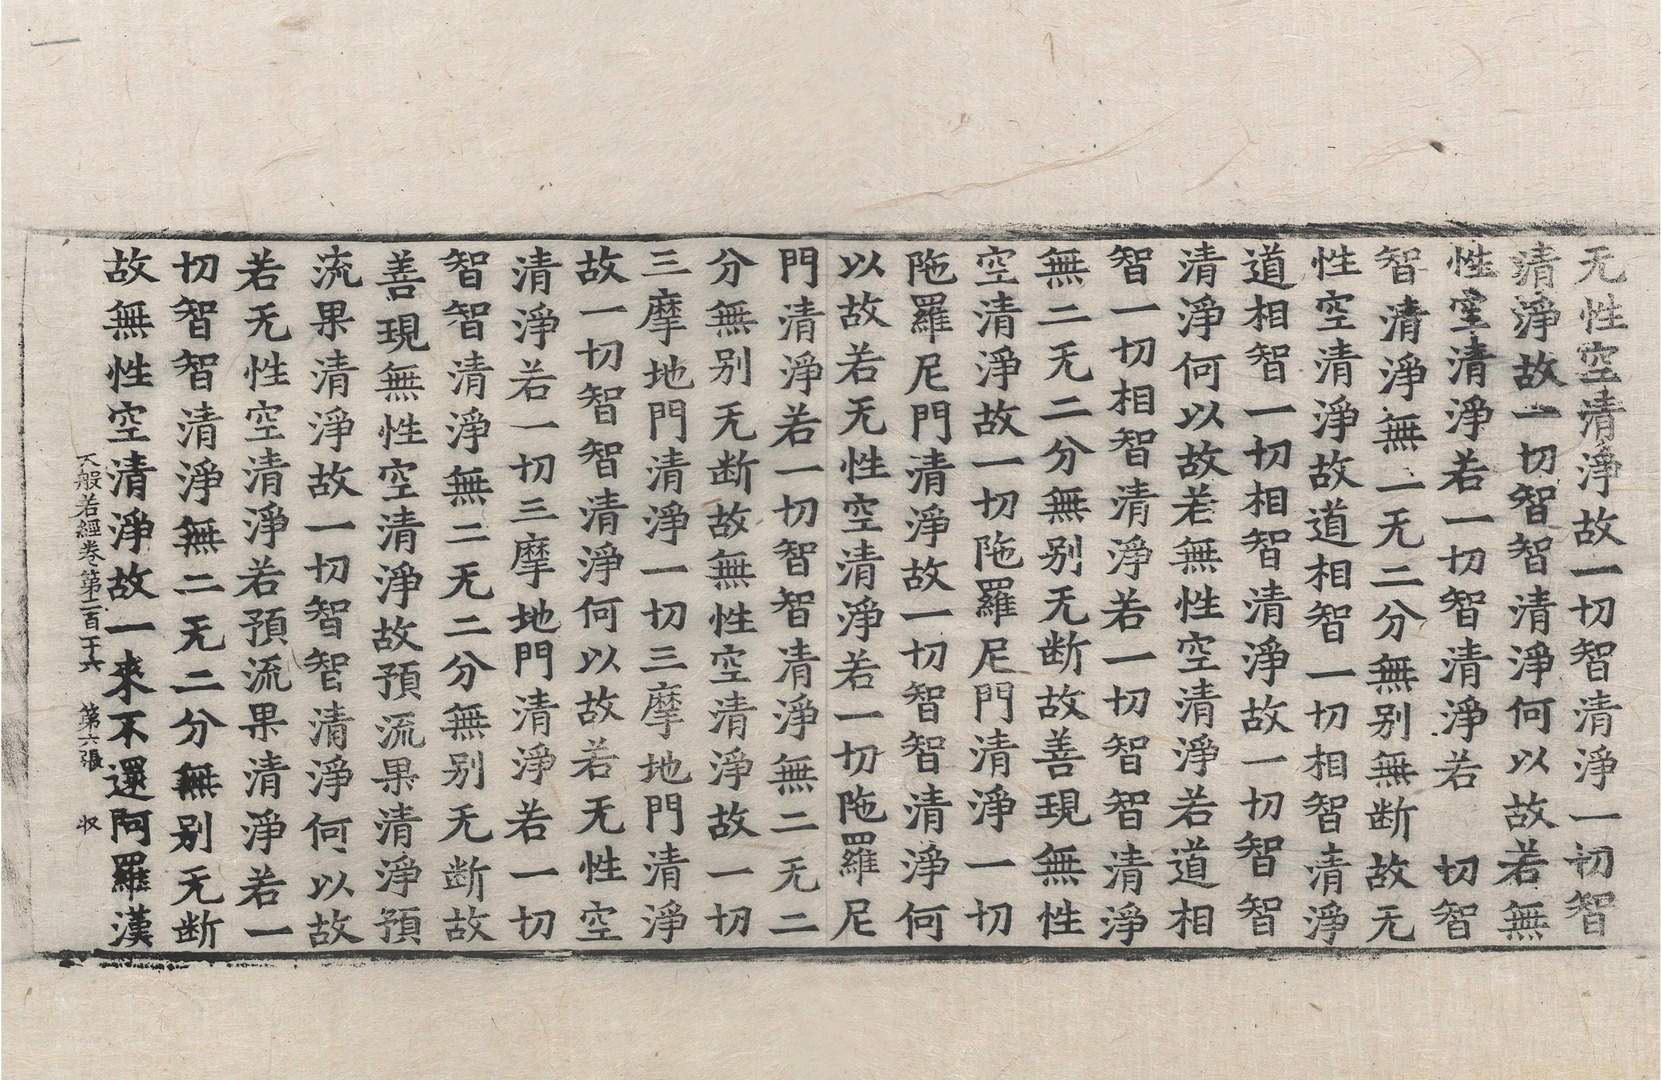 无性空清淨故一切智清淨一切智
清淨故一切智智清淨何以故若無
性空清淨若一切智清淨若切智
智清淨無二无二分無别無断故无
性空清淨故道相智一切相智清淨
道相智一切相智清淨故一切智智
清淨何以故若無性空清淨若道相
智一切相智清淨若一切智智清淨
無二无二分無别无断故善現無性
空清淨故一切陁羅尼門清淨一切
陁羅尼門清淨故一切智智清淨何
以故若无性空清淨若一切陁羅尼
門清淨若一切智智清淨無二无二
分無别无断故無性空清淨故一切
三摩地門清淨一切三摩地門清淨
故一切智智清淨何以故若无性空
清淨若一切三摩地門清淨若一切
智智清淨無二无二分無别无断故
善現無性空清淨故預流果清淨預
流果清淨故一切智智清淨何以故
若无性空清淨若預流果清淨若一
切智智清淨無二无二分無别无断
故無性空清淨故一来不還阿羅漢
大般若經卷第二百十六 第六張 収